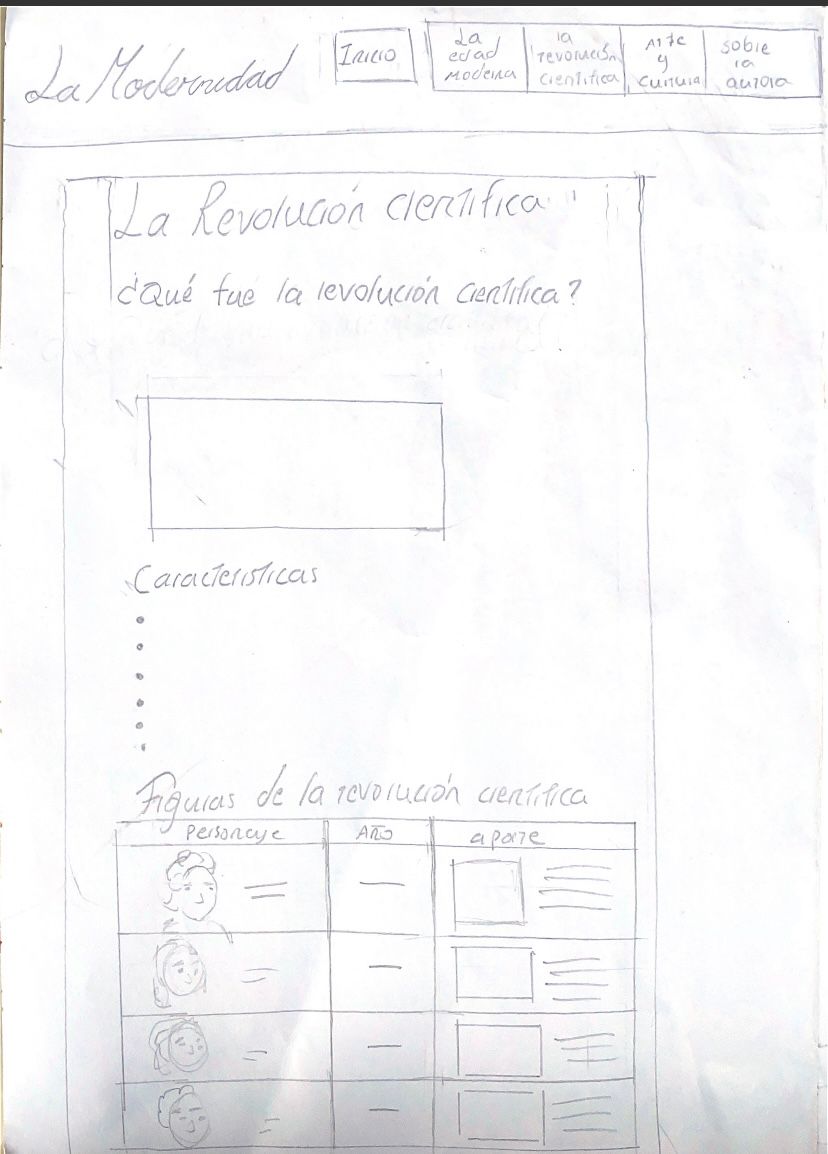 La Modernidad
Inicio
La
edad
Moderna
la
revolución
científica
Arte
y
Cultura
sobre
la
autora
La Revolución científica
¿Qué fue la revolución científica?
Características
Figuras de la revolución científica
Personaje
Año
aporte